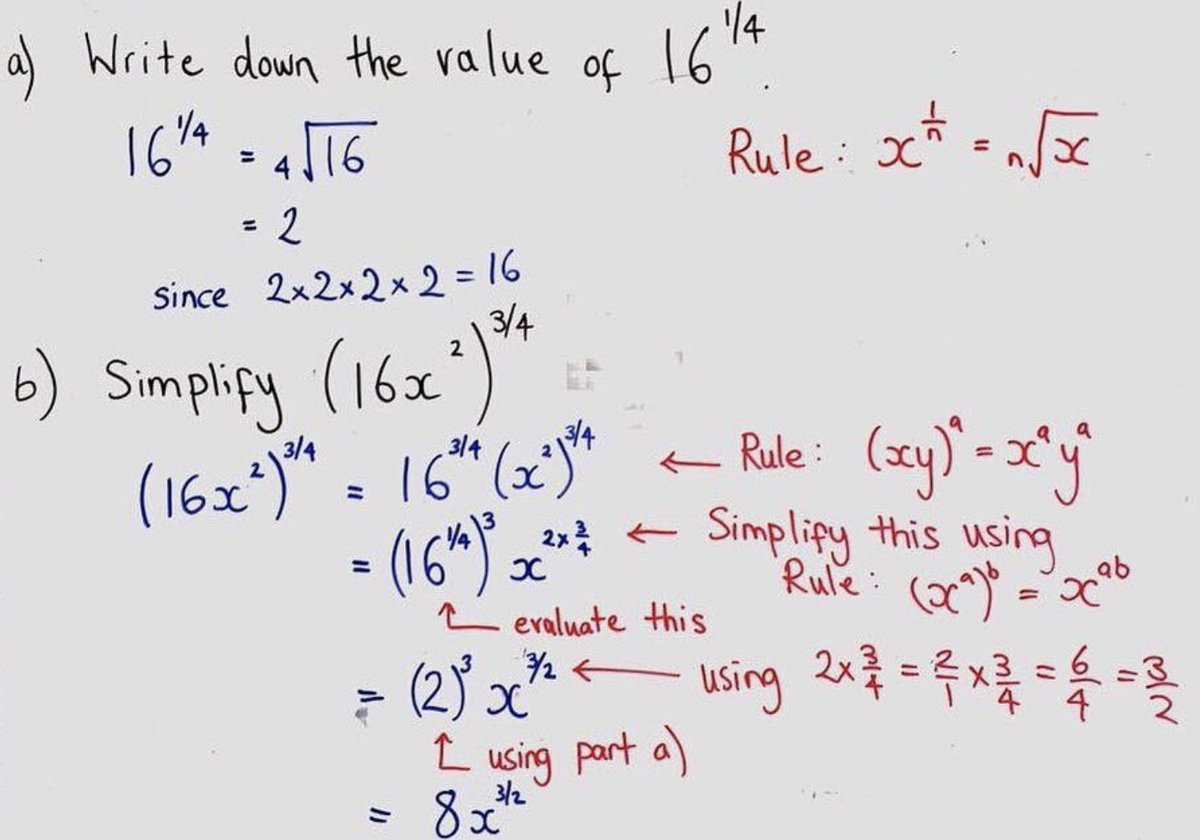 a) Write down the value of 16^1/4.
16^1/4 = 4√16
Rule: x^1/n = n√x
= 2
since 2×2×2×2 = 16
b) Simplify (16x^2)^3/4
(16x^2)^3/4 = 16^3/4 (x^2)^3/4 ← Rule: (xy)^a = x^a y^a
= (16^1/4)^3 x^2×3/4 ← Simplify this using
Rule: (x^a)^b = x^ab
↑ evaluate this
= (2)^3 x^3/2 ← using 2×3/4 = 2/1 × 3/4 = 6/4 = 3/2
↑ using part a)
= 8x^3/2